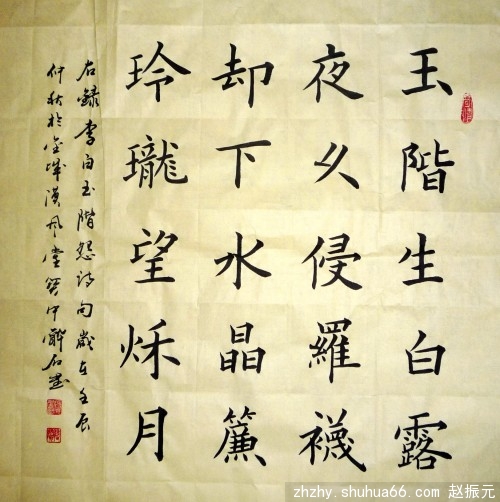 玉階生白露
夜久侵羅襪
却下水晶簾
玲瓏望秌月
右錄李白玉階怨詩句歲在壬辰
仲秋於金城漢風堂
zhzhy.shuhua66.com 赵振元